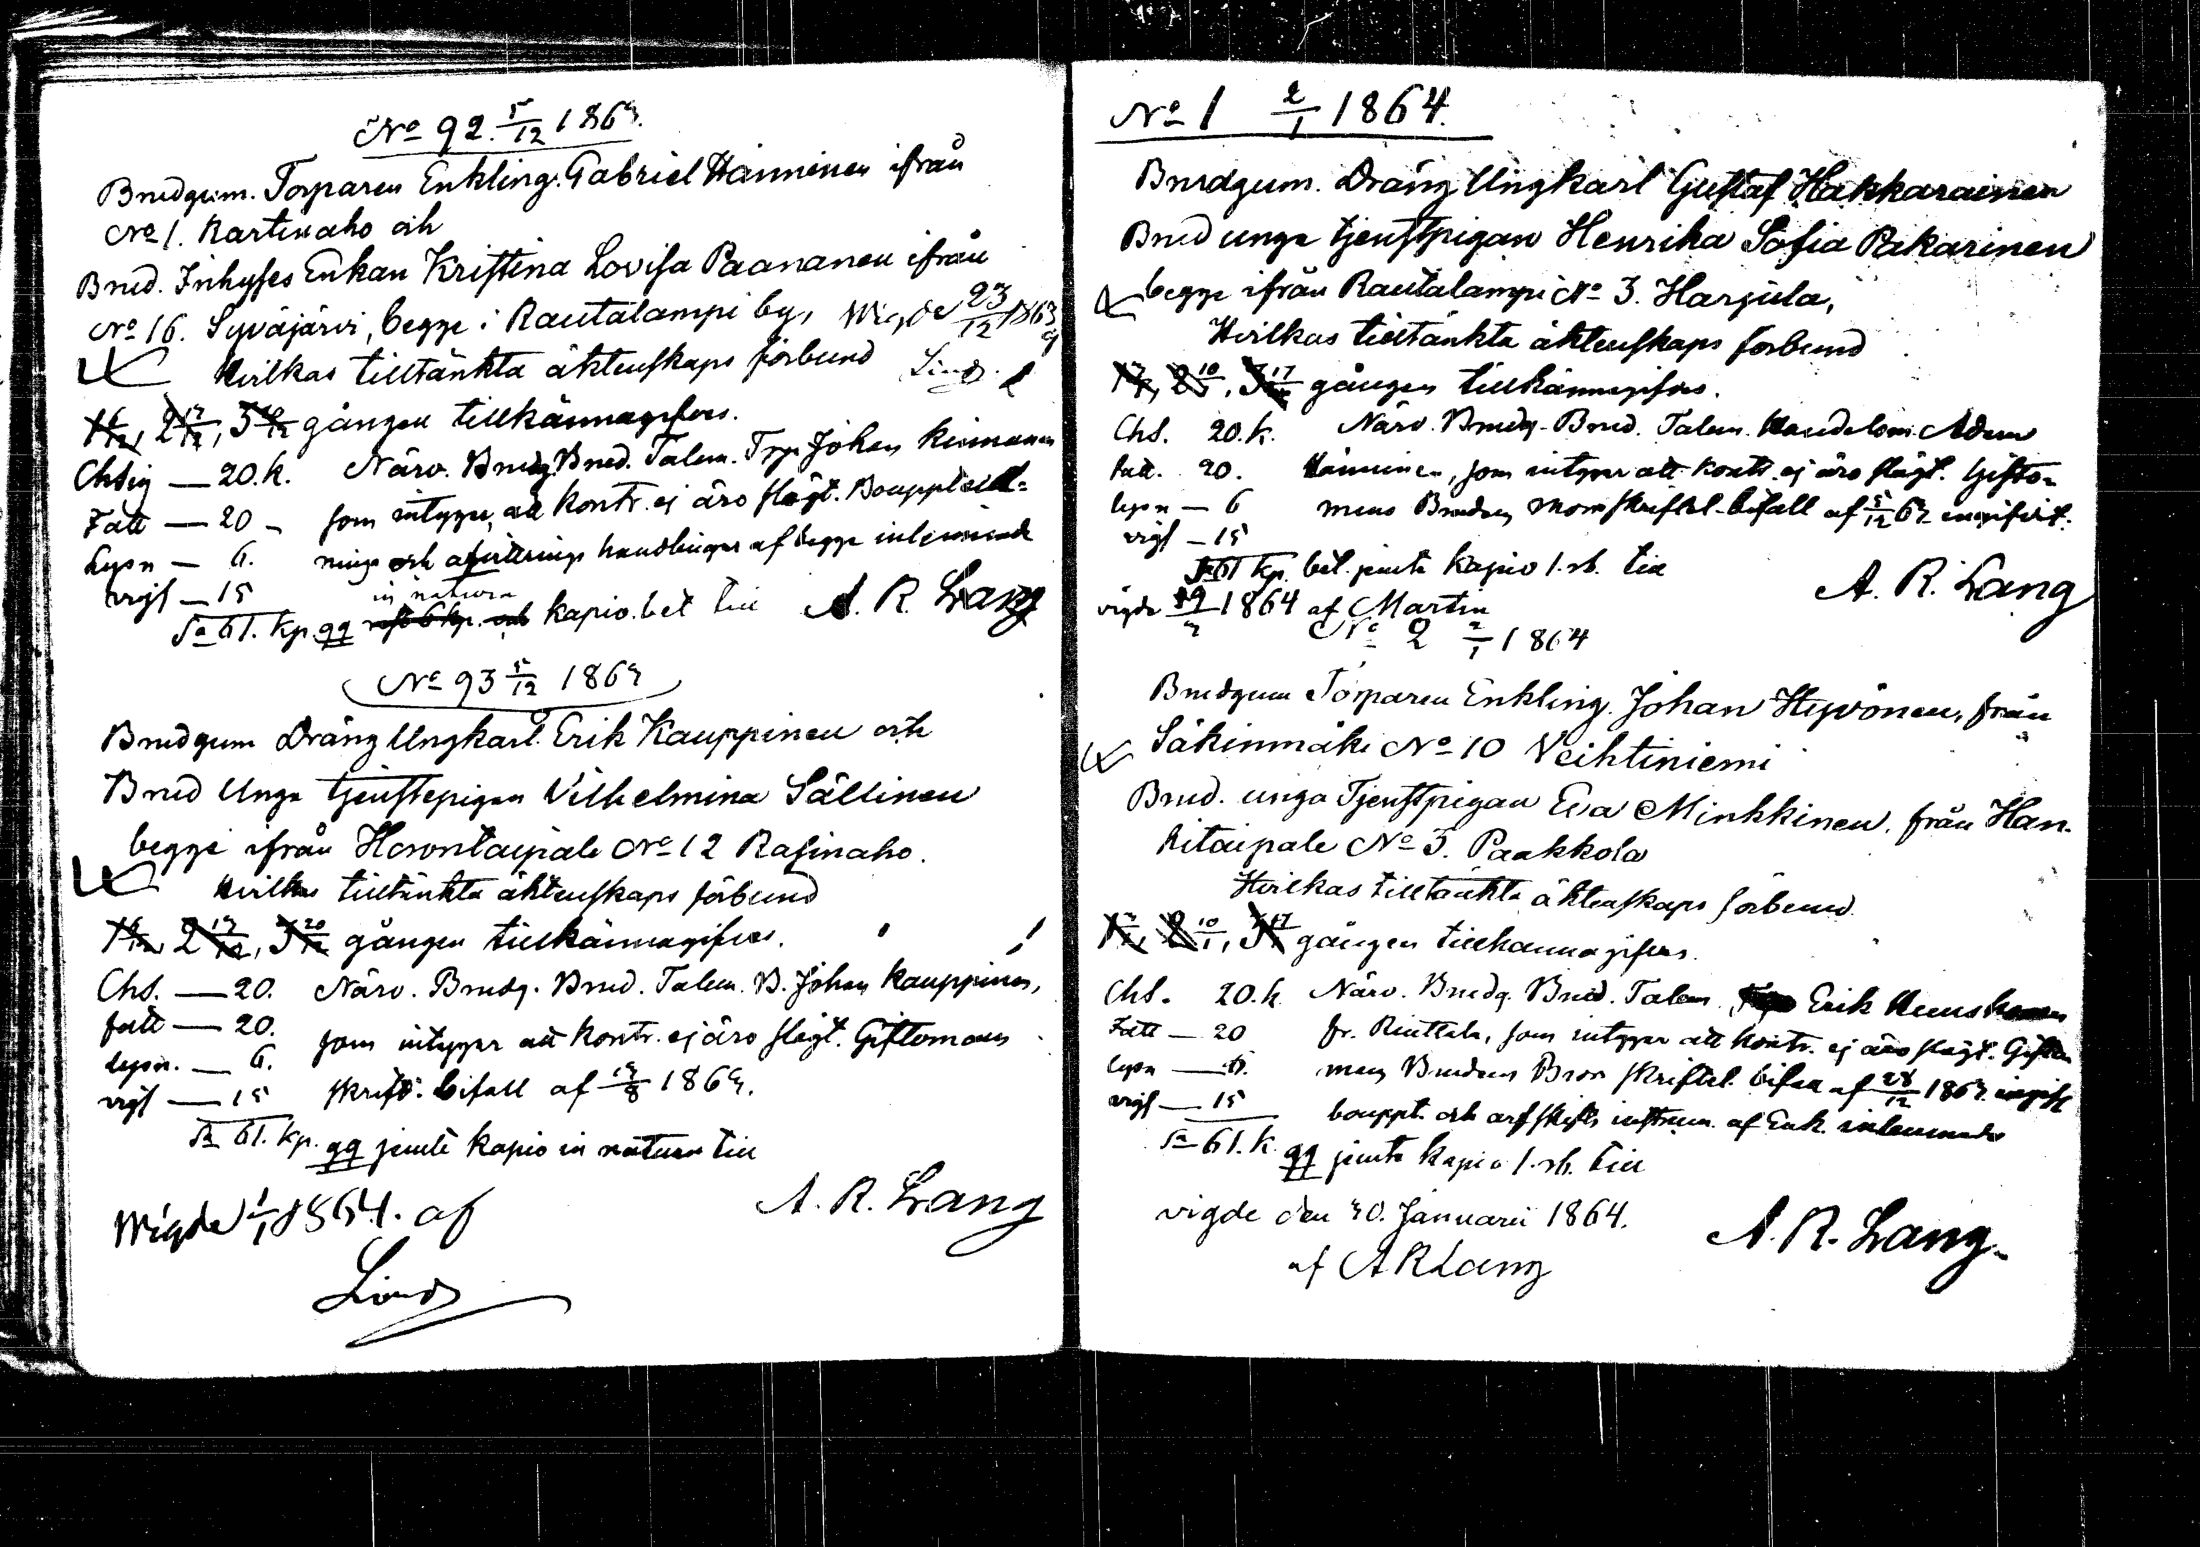 No 92. 5/12 1863.
Brudgum. Torparen Enkling. Gabriel Hänninen ifrån
No 1. Kartinaho och
Brud. Inhyses Enkan Kristina Lovisa Paananen ifrån
No 16. Syväjärvi, begge i Rautalampi by, Wigde 23/12 1863
Hvilkas tilltänkta äktenskaps förbund Lind.
1 6/12, 2 13/12, 3 gången tillkännagifves.
Chsig — 20. k. Närv. Brudg. Brud. Talem. Torp. Johan
Fatt — 20 – som intygar, att kontr. ej äro slägt. Bouppteck=
Lysn — 6. nings och afvittrings handlingar af begge inlemnade
vigs — 15 in natura
Sa 61. kp. qq kapio. bet till A. R. Lang
No 93 5/12 1863
Brudgum Dräng Ungkarl. Erik Kauppinen och
Brud Unga tjenstepigan Vilhelmina Sällinen
begge ifrån No 12 Rasinaho.
Hvilkas tilltänkta äktenskaps förbund
1 6/12, 2 13/12, 3 20/12 gången tillkännagifves.
Chs. — 20. Närv. Brudg. Brud. Talem. B. Johan Kauppinen,
fatt — 20. som intygar att kontr. ej äro slägt. Giftomans
lysn. — 6. skriftl. bifall af 1863.
vigs — 15
Sa 61. kp. qq jemte kapio in natura till
A. R. Lang
Wigde 1/1 1864. af
Lind
No 1 2/1 1864.
Brudgum. Dräng Ungkarl Gustaf Hakkarainen
Brud unga tjenstpigan Henrika Sofia Pakarinen
begge ifrån Rautalampi No 3. Harjula,
Hvilkas tilltänkta äktenskaps förbund
1, 2 10/1, 3 17/1 gången tillkännagifves.
Chs. 20. k. Närv. Brudg. Brud. Talem. Adam
fatt. 20. Hänninen, som intygar att kontr. ej äro slägt. Gifto-
lysn — 6 mans Brudens skriftl. bifall af 5/12 63
vigs — 15
Sa 61 kp. bet. jemte kapio 1. rb. till
A. R. Lang
vigde 1864 af Martin
No 2 2/1 1864
Brudgum Torparen Enkling. Johan Hyvönen, från
Säkinmäki No 10 Veihtiniemi
Brud. unga Tjenstpigan Eva Minkkinen. från Han-
kitaipale No 3. Paakkola
Hvilkas tilltänkta äktenskaps förbund
1, 2 10/1, 3 17/1 gången tillkännagifves.
Chs. 20. k. Närv. Brudg. Brud. Talem. Erik
Fatt — 20 fr. Rinttala, som intygar att kontr. ej äro slägt. Gifto
lysn — 6. mans Brudens Bror skriftel. bifall af 28/12 1863
vigs — 15 bouppt. och arfskifts instrum. af Enk. inlemnade
Sa 61. k. qq jemte kapio 1. rb. till
vigde den 30. Januarii 1864.
A. R. Lang.
af A R Lang